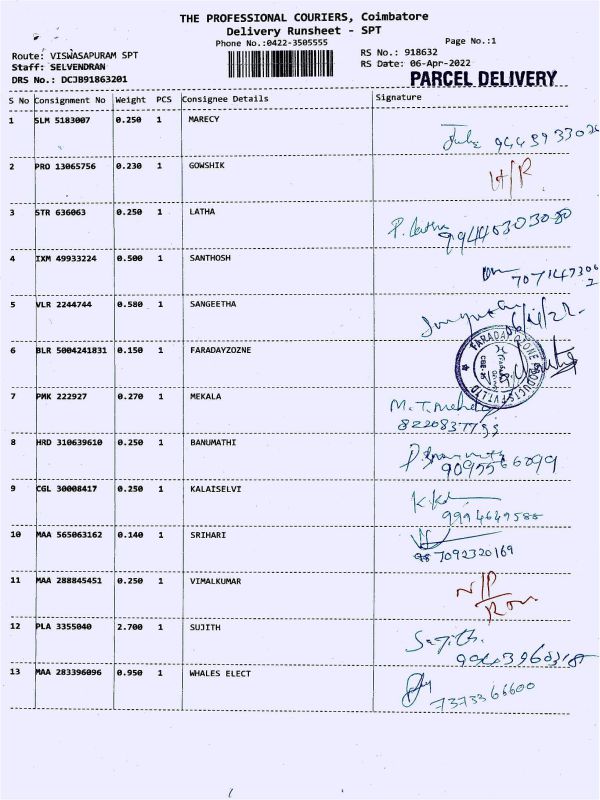 THE PROFESSIONAL COURIERS, Coimbatore
Delivery Runsheet - SPT
Phone No.:0422-3505555
Page No.:1
Route: VISWASAPURAM SPT
RS No.: 918632
Staff: SELVENDRAN
RS Date: 06-Apr-2022
DRS No.: DCJB91863201
PARCEL DELIVERY
S No Consignment No Weight PCS Consignee Details Signature
1 SLM 5183007 0.250 1 MARECY
2 PRO 13065756 0.230 1 GOWSHIK
3 STR 636063 0.250 1 LATHA P. Latha
4 IXM 49933224 0.500 1 SANTHOSH
5 VLR 2244744 0.580 1 SANGEETHA
6 BLR 5004241831 0.150 1 FARADAYZOZNE
7 PMK 222927 0.270 1 MEKALA
8 HRD 310639610 0.250 1 BANUMATHI
9 CGL 30008417 0.250 1 KALAISELVI
9994649588
10 MAA 565063162 0.140 1 SRIHARI
7092320169
11 MAA 288845451 0.250 1 VIMALKUMAR
12 PLA 3355040 2.700 1 SUJITH Sujith.
13 MAA 283396096 0.950 1 WHALES ELECT
7373366600